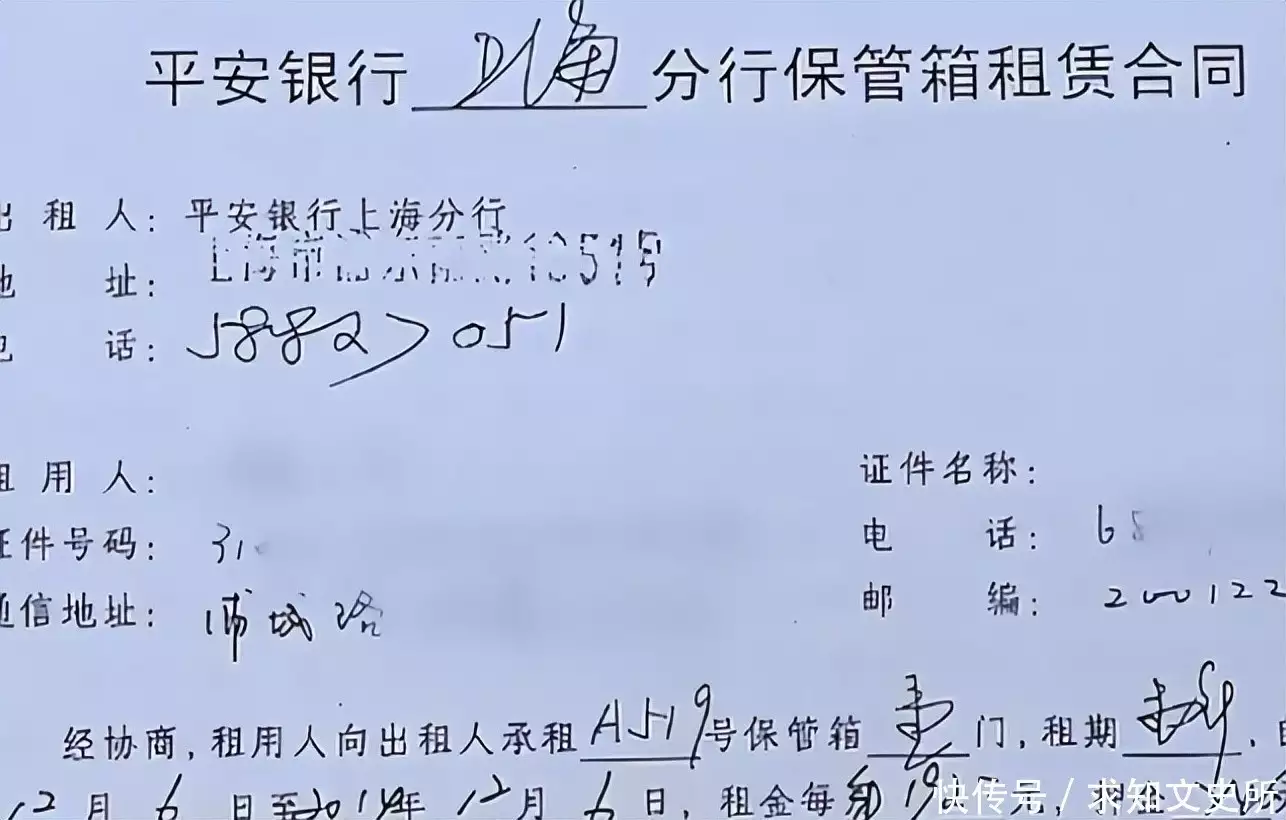 平安银行 上海 分行保管箱租赁合同
出 租 人: 平安银行上海分行
地 址:
电 话: 5882 051
租 用 人: 证件名称:
证件号码: 31 电 话: 68
通信地址: 浦城路 邮 编: 200122
经协商, 租用人向出租人承租 A519 号保管箱 门, 租期
12 月 6 日至2014年 12 月 6 日, 租金每 元, 押金
快传号 / 求知文史所